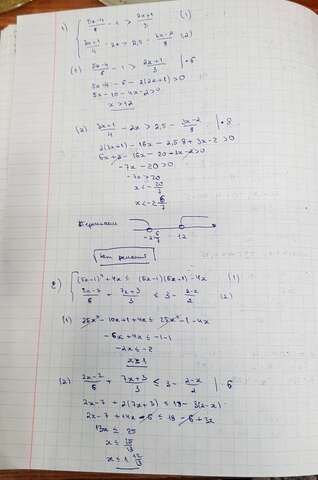 1)
5x-4/6 - 1 > 2x+1/3 (1)
3x+1/4 - 2x > 2,5 - 3x-2/8 (2)
(1) 5x-4/6 - 1 > 2x+1/3 | · 6
5x-4-6-2(2x+1)>0
5x-10-4x-2>0
x>12
(2) 3x+1/4 - 2x > 2,5 - 3x-2/8 | · 8
2(3x+1) - 16x - 2,5·8 + 3x-2 > 0
6x+2-16x-20+3x-2>0
-7x-20>0
-7x>20
x<-20/7
x<-2 6/7
-2 6/7 12
2)
(5x-1)² + 4x ≤ (5x-1)(5x+1) - 4x (1)
2x-7/6 + 7x+3/3 ≤ 3 - 2-x/2 (2)
(1) 25x² - 10x+1+4x ≤ 25x² - 1 - 4x
-6x+4x ≤ -1-1
-2x ≤ -2
x ≥ 1
(2) 2x-7/6 + 7x+3/3 ≤ 3 - 2-x/2 | · 6
2x-7 + 2(7x+3) ≤ 18 - 3(2-x)
13x ≤